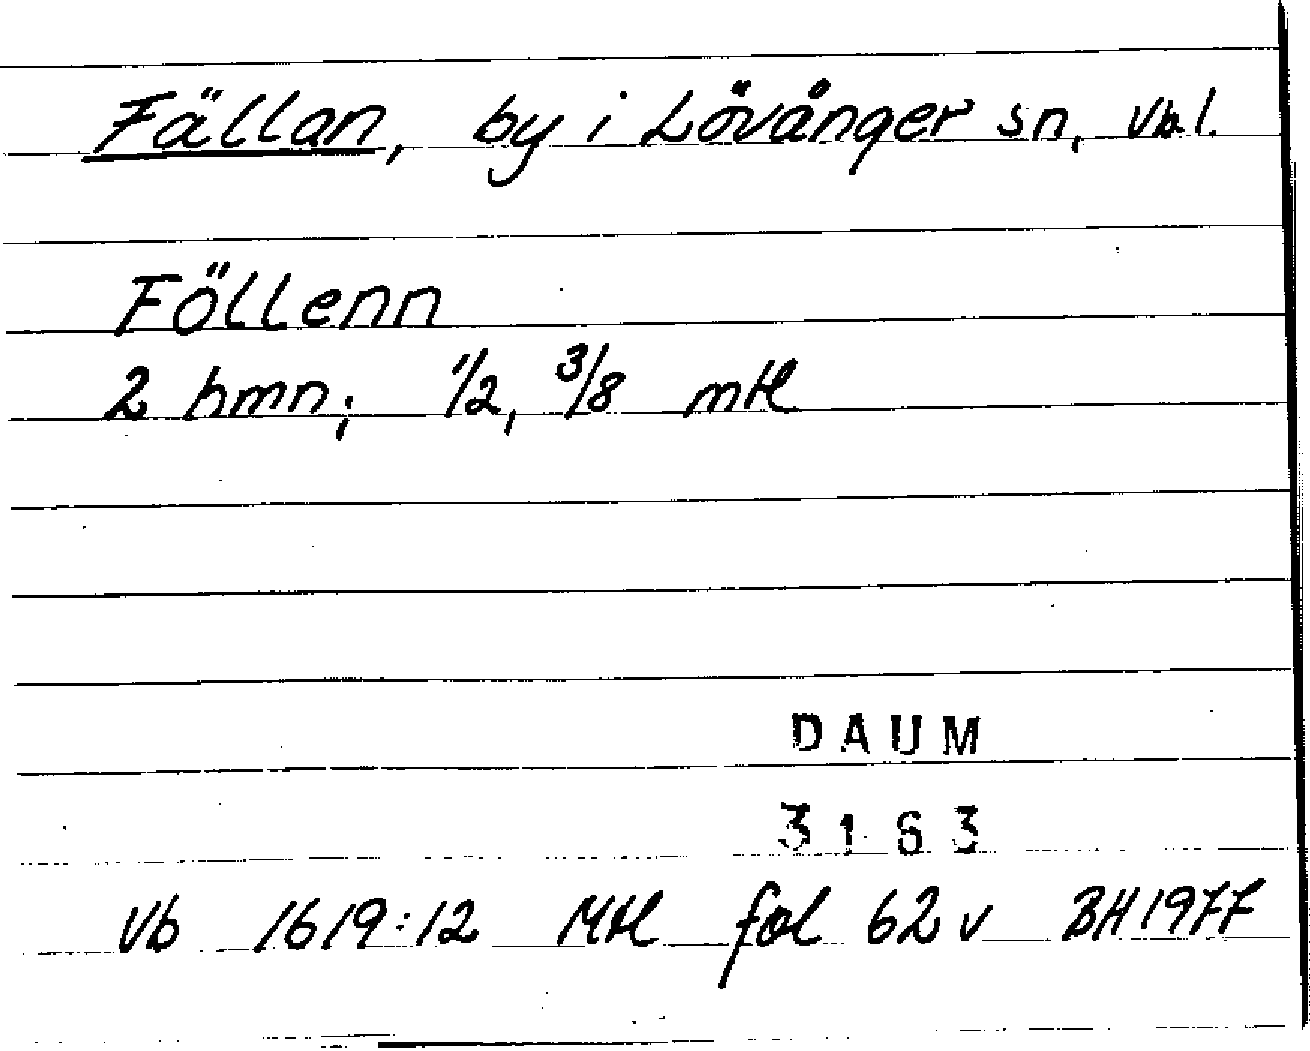 Fällan, by i Lövånger sn, Vbl.
Föllenn
2 hmn; 1/2, 3/8 mtl
DAUM
3163
Vb 1619:12 Mtl fol 62 v BH 1977